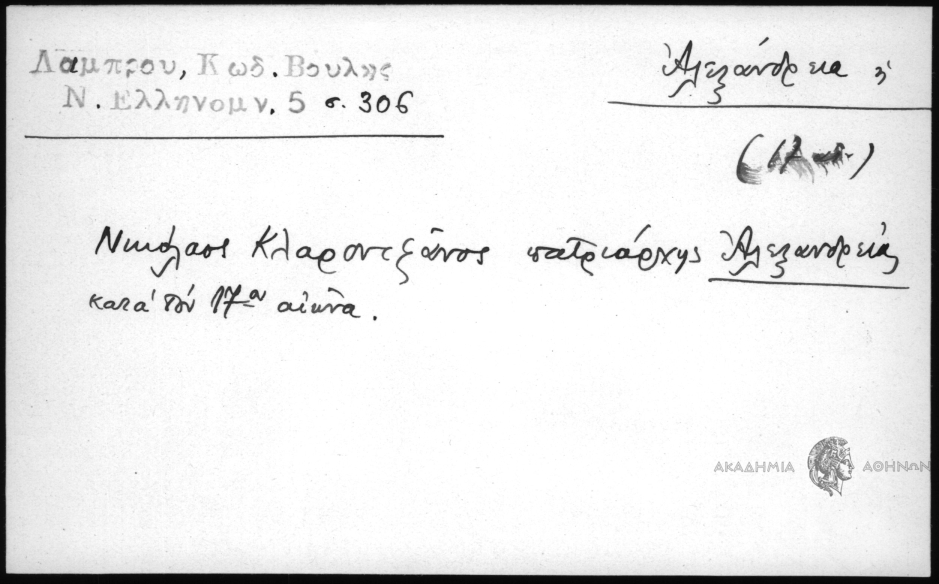 Λαμπρου, Κωδ. Βουλης
Ν. Ελληνομν. 5 σ. 306
Ἀλεξάνδρεια ἡ
(17 αἰ.)
Νικόλαος Κλαροντζᾶνος πατριάρχης Ἀλεξανδρείας
κατά τόν 17ον αἰῶνα.
ΑΚΑΔΗΜΙΑ ΑΘΗΝΩΝ